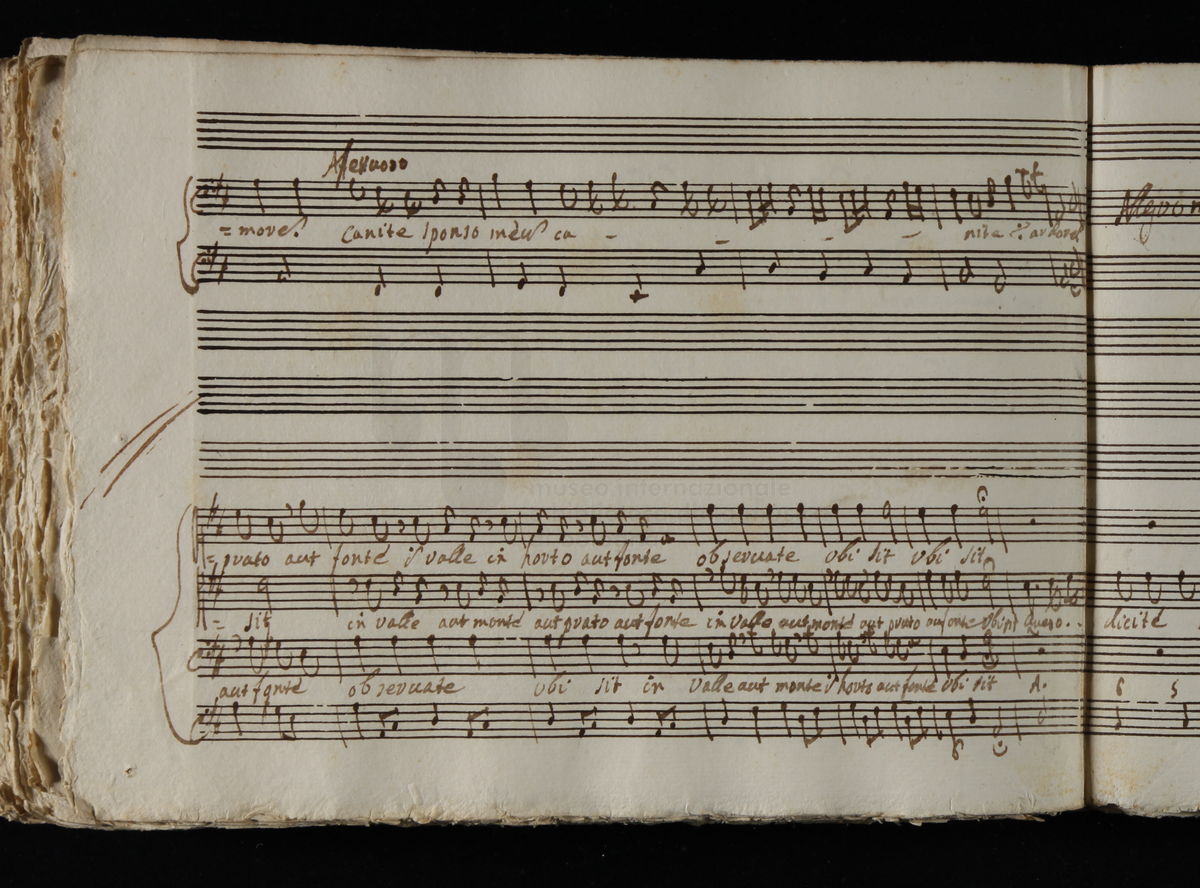 Afettuoso
= more. Canite sponso meo ca - - - - nite
Alegro
museo internazionale
= prato aut fonte valle in horto aut fonte observate ubi sit ubi sit
= sit in valle aut monte aut prato aut fonte in valle aut monte aut prato aut fonte ubi sit dicite
aut fonte observate ubi sit in valle aut monte horto aut fonte ubi sit A.
6 5
6